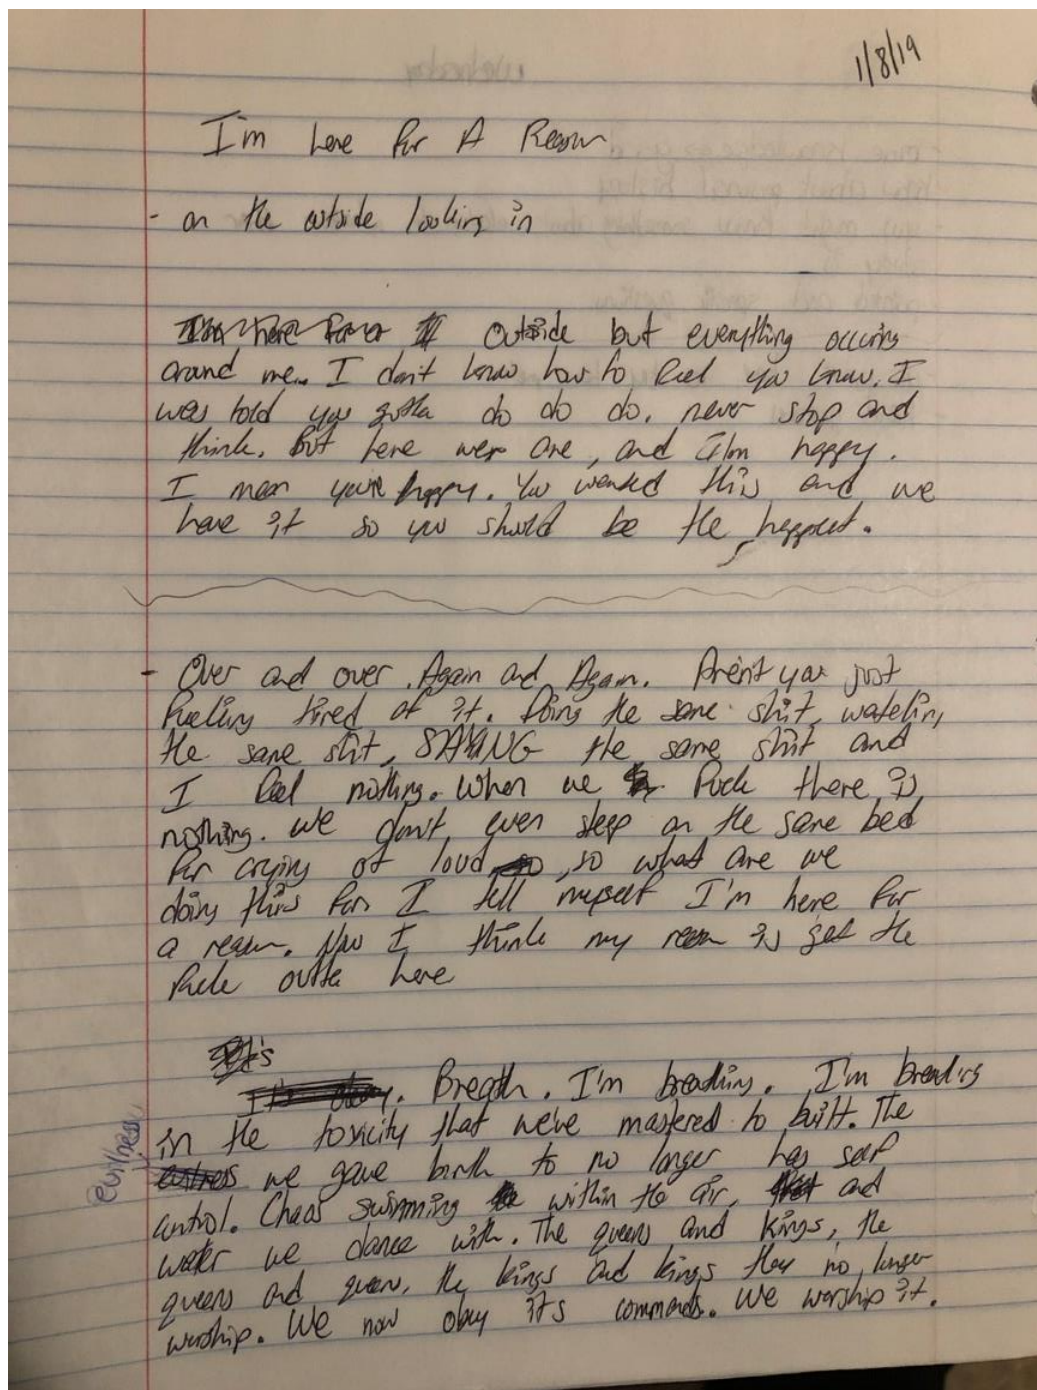 1/8/19
I'm here for A Reason
- on the outside looking in
Outside but everything occuring
around me.. I don't know how to feel you know. I
was told you gotta do do do. never stop and
think. But here wer are, and I'm happy.
I mean you're happy. You wanted this and we
have it so you should be the happiest.
- Over and over. Again and Again. Aren't you just
fueling tired of it. Doing the same shit, watching
the same shit, SAYING the same shit and
I feel nothing. When we fuck there is
nothing. We don't even sleep on the same bed
for crying ot loud, so what are we
doing this for. I tell myself I'm here for
a reason. Now I think my reason is get the
fuck outta here
Breath. I'm breathing. I'm breathing
in the toxicity that we've mastered to built. The
evilness
we gave birth to no longer has self
control. Chaos swimming within the air, and
water we dance with. The queens and kings, the
queens and queens, the kings and kings they no longer
worship. We now obay it's commands. We worship it.